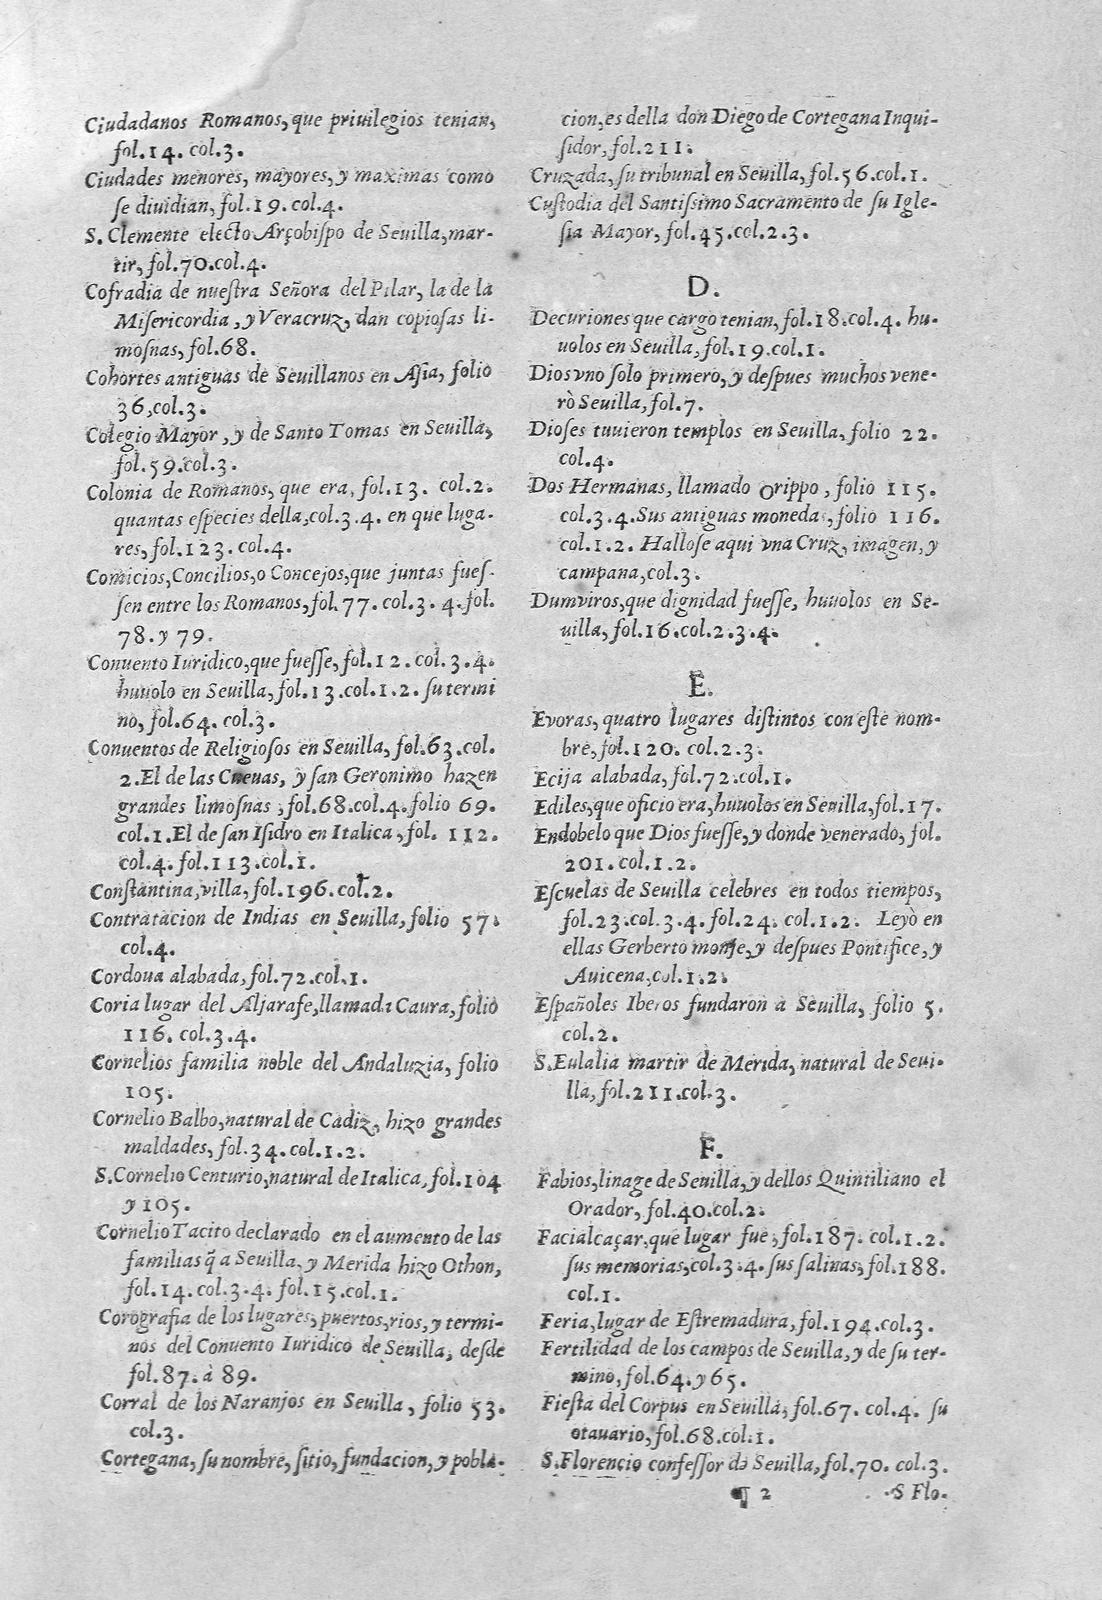 Ciudadanos Romanos, que priuilegios tenian,
fol.14. col.3.
Ciudades menores, mayores, y maximas como
se diuidian, fol.19. col.4.
S. Clemente electo Arçobispo de Seuilla, mar-
tir, fol.70.col.4.
Cofradia de nuestra Señora del Pilar, la de la
Misericordia, y Veracruz, dan copiosas li-
mosnas, fol.68.
Cohortes antiguas de Seuillanos en Asia, folio
36,col.3.
Colegio Mayor, y de Santo Tomas en Seuilla,
fol.59.col.3.
Colonia de Romanos, que era, fol.13. col.2.
quantas especies della,col.3.4. en que luga-
res, fol.123. col.4.
Comicios, Concilios, o Concejos, que juntas fues-
sen entre los Romanos, fol.77. col.3. 4. fol.
78. y 79.
Conuento Iuridico, que fuesse, fol.12. col.3.4.
huuolo en Seuilla, fol.13.col.1.2. su termi
no, fol.64. col.3.
Conuentos de Religiosos en Seuilla, fol.63.col.
2.El de las Cueuas, y san Geronimo hazen
grandes limosnas, fol.68.col.4. folio 69.
col.1.El de san Isidro en Italica, fol. 112.
col.4. fol.113.col.1.
Constantina, villa, fol.196.col.2.
Contratacion de Indias en Seuilla, folio 57.
col.4.
Cordoua alabada, fol.72.col.1.
Coria lugar del Aljarafe, llamada Caura, folio
116. col.3.4.
Cornelios familia noble del Andaluzia, folio
105.
Cornelio Balbo, natural de Cadiz, hizo grandes
maldades, fol.34.col.1.2.
S.Cornelio Centurio, natural de Italica, fol.104
y 105.
Cornelio Tacito declarado en el aumento de las
familias q̃ a Seuilla, y Merida hizo Othon,
fol.14. col.3.4. fol.15.col.1.
Corografia de los lugares, puertos, rios, y termi-
nos del Conuento Iuridico de Seuilla, desde
fol.87. à 89.
Corral de los Naranjos en Seuilla, folio 53.
col.3.
Cortegana, su nombre, sitio, fundacion, y pobla-
cion, es della don Diego de Cortegana Inqui-
sidor, fol.211.
Cruzada, su tribunal en Seuilla, fol.56.col.1.
Custodia del Santissimo Sacramento de su Igle-
sia Mayor, fol.45.col.2.3.
D.
Decuriones que cargo tenian, fol.18.col.4. hu-
uolos en Seuilla, fol.19.col.1.
Dios vno solo primero, y despues muchos vene-
rò Seuilla, fol.7.
Dioses tuuieron templos en Seuilla, folio 22.
col.4.
Dos Hermanas, llamado Orippo, folio 115.
col.3.4.Sus antiguas monedas, folio 116.
col.1.2. Hallose aqui vna Cruz, imagen, y
campana,col.3.
Dumviros, que dignidad fuesse, huuolos en Se-
uilla, fol.16.col.2.3.4.
E.
Evoras, quatro lugares distintos con este nom-
bre, fol.120. col.2.3.
Ecija alabada, fol.72.col.1.
Ediles, que oficio era, huuolos en Seuilla, fol.17.
Endobelo que Dios fuesse, y donde venerado, fol.
201.col.1.2.
Escuelas de Seuilla celebres en todos tiempos,
fol.23.col.3.4. fol.24. col.1.2. Leyò en
ellas Gerberto monje, y despues Pontifice, y
Auicena,col.1.2.
Españoles Iberos fundaron a Seuilla, folio 5.
col.2.
S.Eulalia martir de Merida, natural de Seui-
lla, fol.211.col.3.
F.
Fabios, linage de Seuilla, y dellos Quintiliano el
Orador, fol.40.col.2.
Facialcaçar, que lugar fue, fol.187. col.1.2.
sus memorias,col.3.4. sus salinas, fol.188.
col.1.
Feria, lugar de Estremadura, fol.194.col.3.
Fertilidad de los campos de Seuilla, y de su ter-
mino, fol.64. y 65.
Fiesta del Corpus en Seuilla, fol.67. col.4. su
otauario, fol.68.col.1.
S.Florencio confessor de Seuilla, fol.70. col.3.
¶ 2
S Flo-